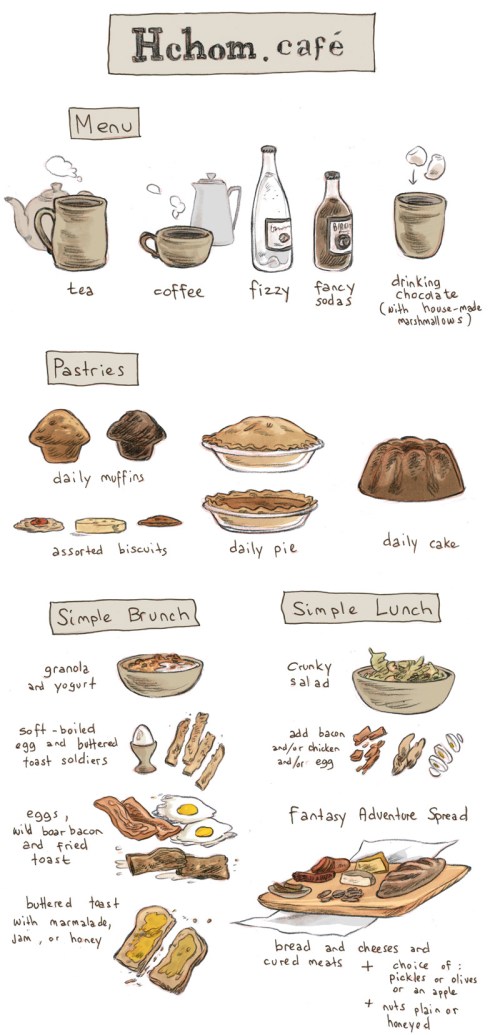 Hchom. café
Menu
tea
coffee
fizzy
fancy
sodas
drinking
chocolate
(with house-made
marshmallows)
Pastries
daily muffins
assorted biscuits
daily pie
daily cake
Simple Brunch
granola
and yogurt
soft-boiled
egg and buttered
toast soldiers
eggs,
wild boar bacon
and fried
toast
buttered toast
with marmalade,
jam, or honey
Simple Lunch
crunky
salad
add bacon
and/or chicken
and/or egg
Fantasy Adventure Spread
bread and cheeses and
cured meats
+ choice of:
pickles or olives
or an apple
+ nuts plain or
honeyed